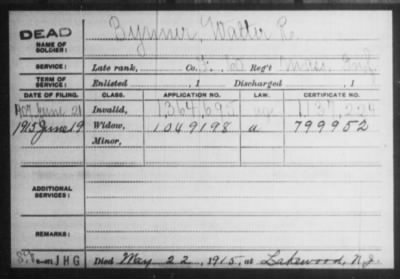 DEAD
NAME OF SOLDIER: Zynner, Walter R.
SERVICE: Late rank, Co. Reg't Mass. Inf.
TERM OF SERVICE: Enlisted , 1 Discharged , 1
DATE OF FILING. CLASS. APPLICATION NO. LAW. CERTIFICATE NO.
June 21 Invalid, 1,364,695
1915 June 19 Widow, 1049198 a 799952
Minor,
ADDITIONAL SERVICES:
REMARKS:
JHG Died May 22, 1915, at Lakewood, N.J.